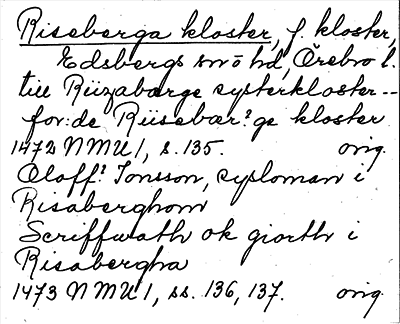 Riseberga kloster, f. kloster,
Edsbergs sn o hd, Örebro l.
till Riizabærge systerkloster --
for:de Riisebær?ge kloster
1472 NMU 1, s. 135. orig.
Oloff? Jonsson, sysloman i
Risaberghom
Scriffwath ok giorth i
Risabergha
1473 NMU 1, ss. 136, 137. orig.